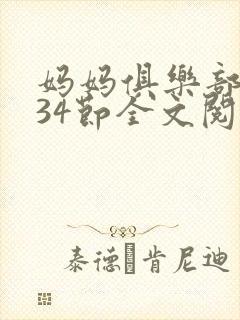 妈妈俱樂部
34節全文閱
泰德·肯尼迪